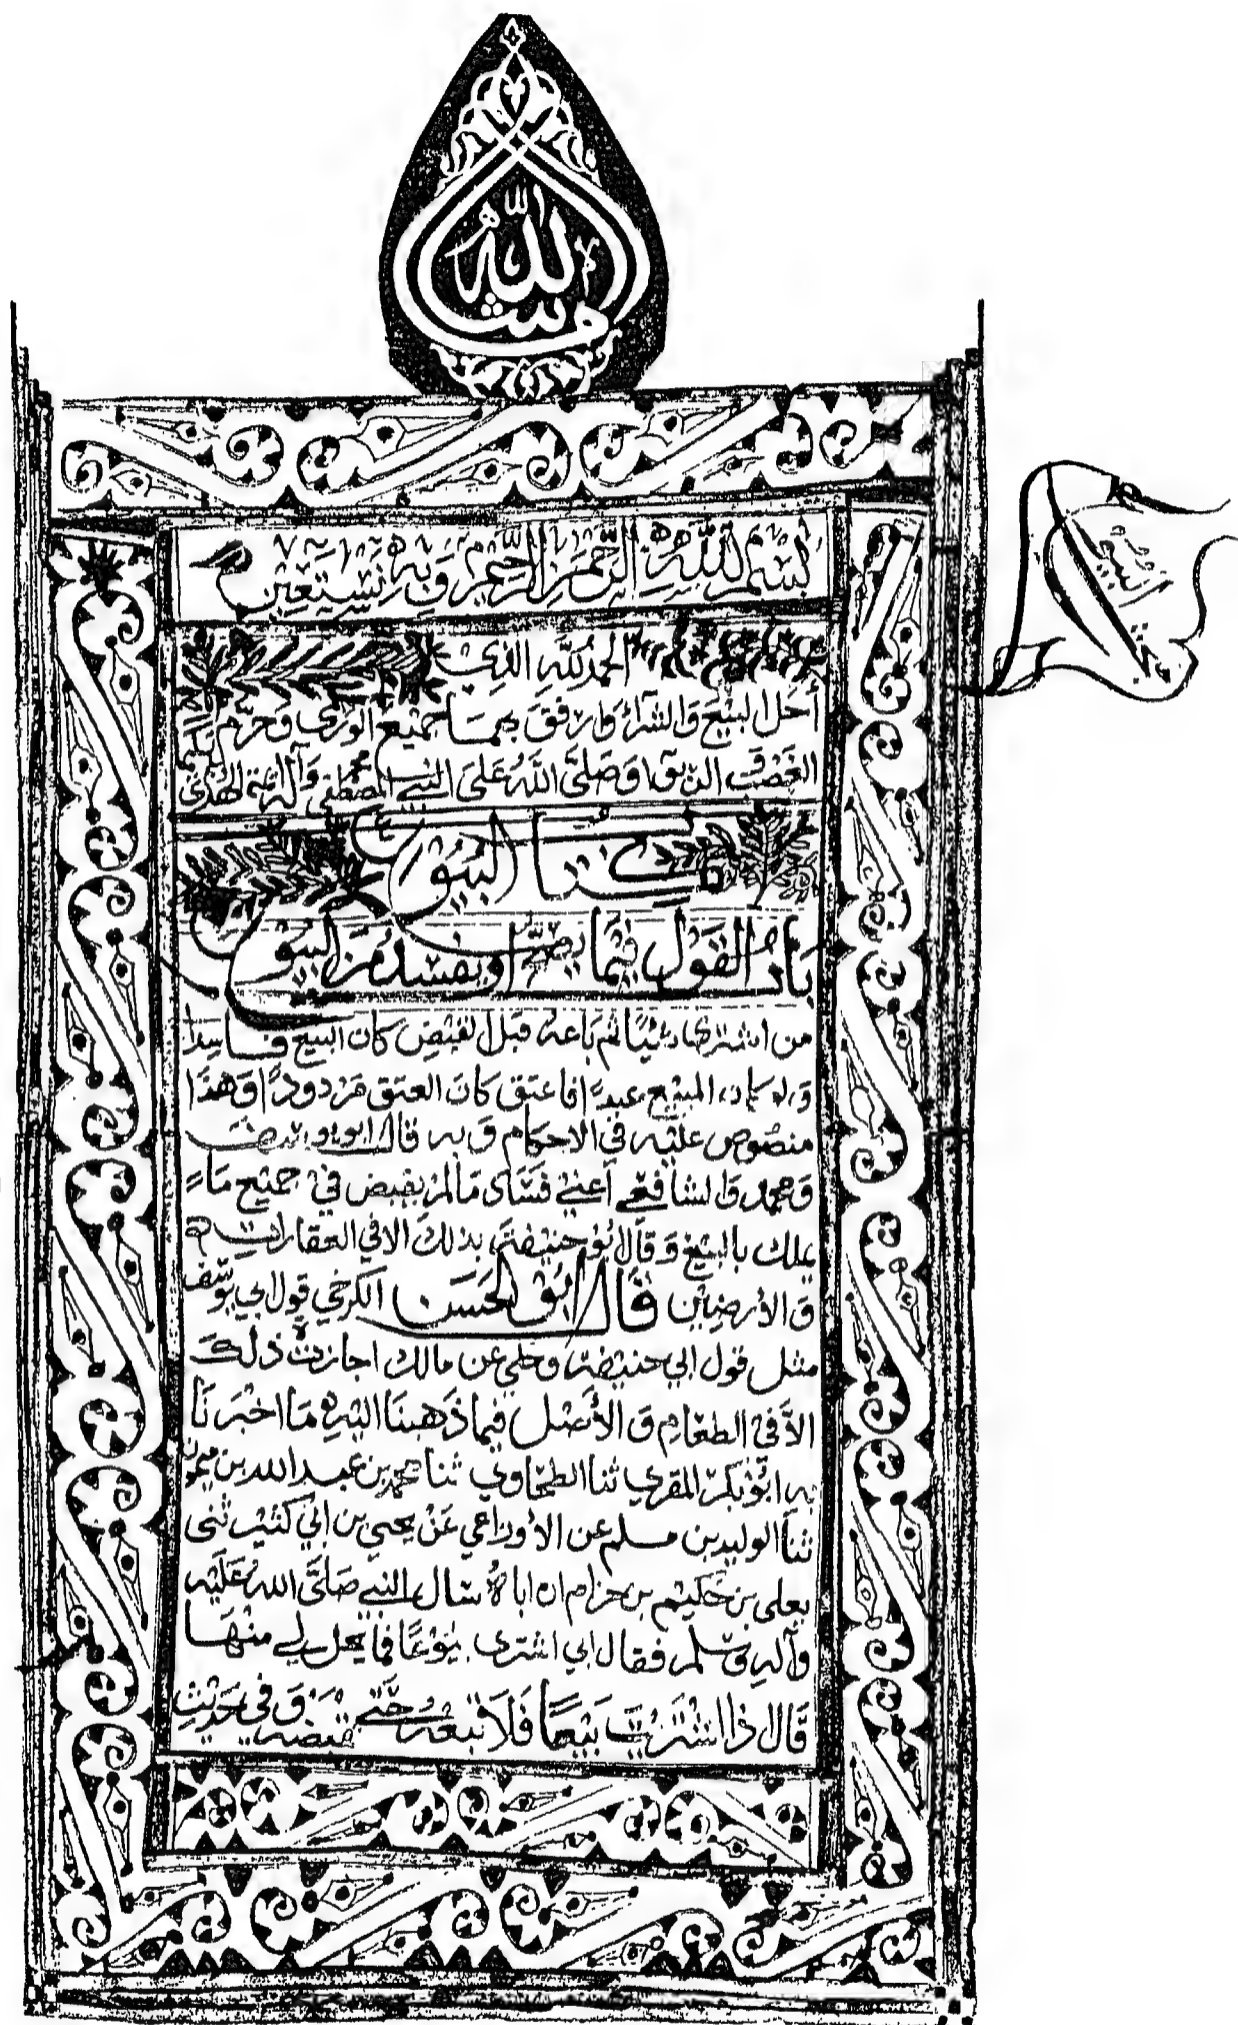 ما شاء الله
بسم الله الرحمن الرحيم وبه نستعين
الحمد لله الذي
أحل البيع والشراء وارفق بهما جميع الورى وحرم
الغصب والربوا وصلى الله على النبي محمد المصطفى وآله أئمة الهدى
كتاب البيوع
باب القول فيما يصح أو يفسد من البيوع
من اشترى شيئا ثم باعه قبل القبض كان البيع فاسدا
وان كان المبيع عبدا فاعتق كان العتق مردودا وهذا
منصوص عليه في الاحكام وبه قال ابو يوسف
ومحمد والشافعي أعني فساد مالم يقبض في جميع ما
يملك بالبيع وقال ابو حنيفة بذلك الا في العقارات
والأرضين قال ابو الحسن الكرخي قول ابي يوسف
مثل قول ابي حنيفة وحكي عن مالك اجازة ذلك
الا في الطعام والأصل فيما ذهبنا اليه ما اخبرنا
به ابو بكر المقري ثنا الطحاوي ثنا محمد بن عبد الله بن ميمون
ثنا الوليد بن مسلم عن الأوزاعي عن يحيى بن ابي كثير ثنى
يعلى بن حكيم بن حزام ان اباه سال النبي صلى الله عليه
وآله وسلم فقال اني اشتري بيوعا فما يحل لي منها
قال اذا اشتريت بيعا فلا تبعه حتى تقبضه وفي حديث